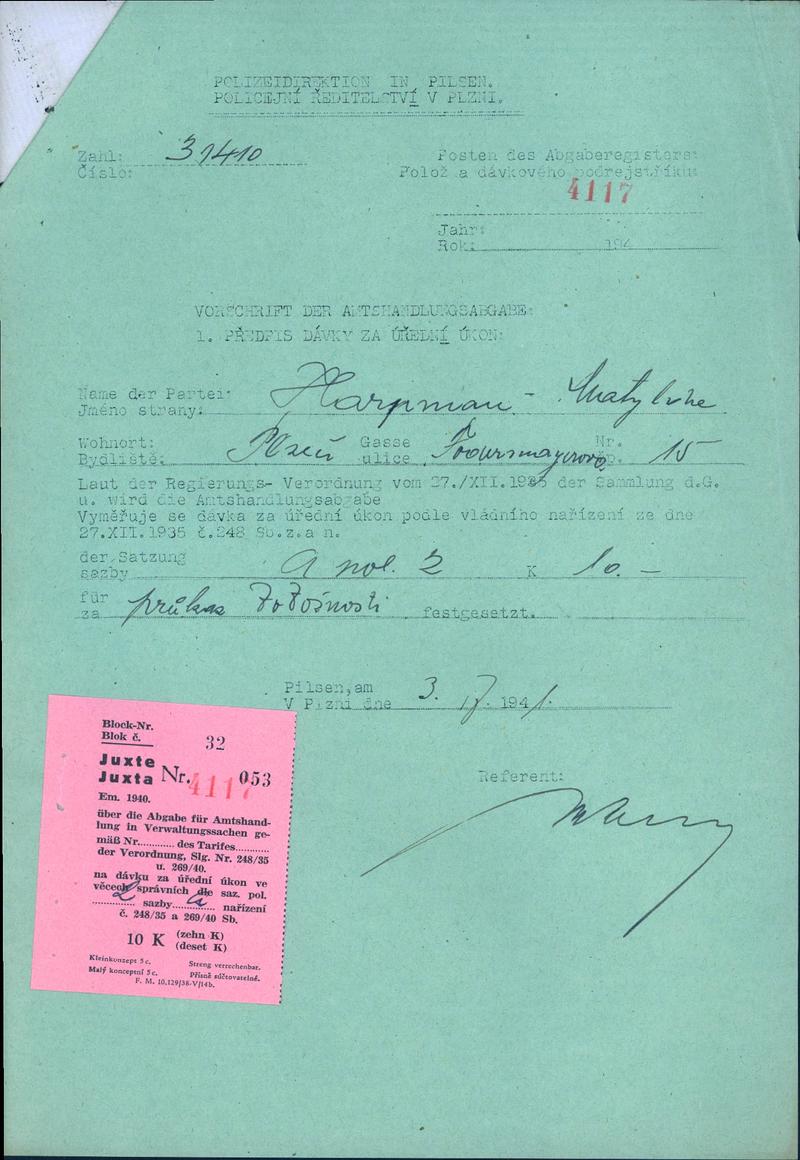 POLIZEIDIREKTION IN PILSEN.
POLICEJNÍ ŘEDITELSTVÍ V PLZNI.
Zahl: 31410
Číslo:
Posten des Abgaberegisters:
Polož a dávkového podrejstříku:
4117
Jahr:
Rok: 194
VORSCHRIFT DER AMTSHANDLUNGSABGABE:
1. PŘEDPIS DÁVKY ZA ÚŘEDNÍ ÚKON:
Name der Partei:
Jméno strany: Harpman -
Wohnort: Gasse Nr.
Bydliště: Plzeň ulice čp. 15
Laut der Regierungs- Verordnung vom 27./XII.1935 der Sammlung d.G.
u. wird die Amtshandlungsabgabe
Vyměřuje se dávka za úřední úkon podle vládního nařízení ze dne
27.XII.1935 č.248 Sb.z.a n.
der Satzung
sazby a pol. 2 K 10.-
für
za průkaz totožnosti festgesetzt.
Pilsen,am
V Plzni dne 3. 1941.
Referent:
Block-Nr.
Blok č. 32
Juxte
Juxta Nr. 4117 053
Em. 1940.
über die Abgabe für Amtshand-
lung in Verwaltungssachen ge-
mäß Nr............ des Tarifes...........
der Verordnung, Slg. Nr. 248/35
u. 269/40.
na dávku za úřední úkon ve
věcech správních dle saz. pol.
2 sazby a nařízení
č. 248/35 a 269/40 Sb.
10 K (zehn K)
(deset K)
Kleinkonzept 5 c. Streng verrechenbar.
Malý konceptní 5 c. Přísně súčtovatelné.
F. M. 10.129/38-V/14b.